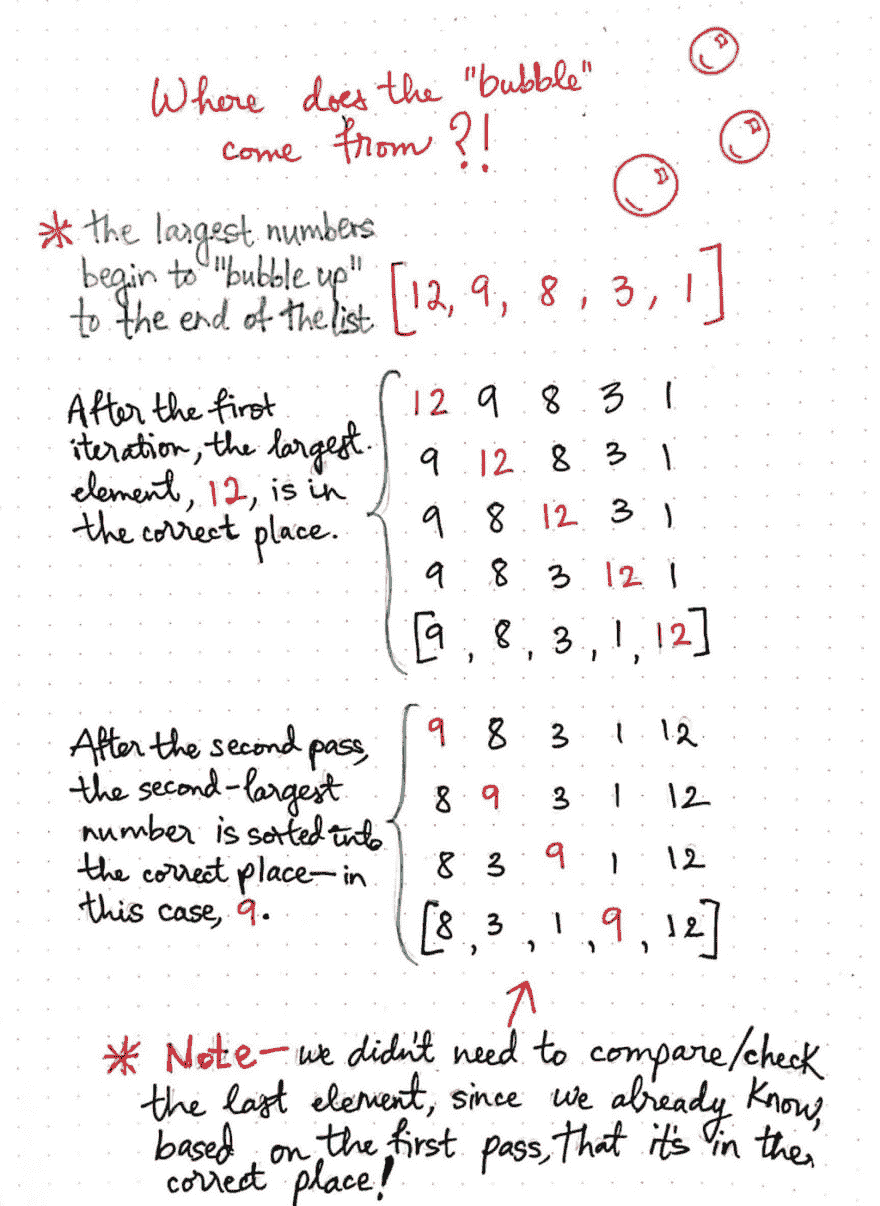 Where does the "bubble"
come from?!
* the largest numbers
begin to "bubble up"
to the end of the list
[12, 9, 8, 3, 1]
After the first
iteration, the largest
element, 12, is in
the correct place.
12 9 8 3 1
9 12 8 3 1
9 8 12 3 1
9 8 3 12 1
[9, 8, 3, 1, 12]
After the second pass,
the second-largest
number is sorted into
the correct place—in
this case, 9.
9 8 3 1 12
8 9 3 1 12
8 3 9 1 12
[8, 3, 1, 9, 12]
* Note— we didn't need to compare/check
the last element, since we already know,
based on the first pass, that it's in the
correct place!